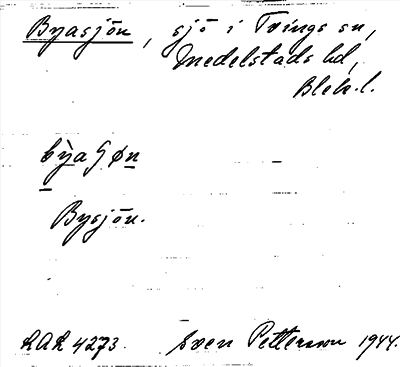 Byasjön, sjö i Tvings sn,
Medelstads hd,
Blek. l.
Bysjön.
4273. Sven Petterson 1944.